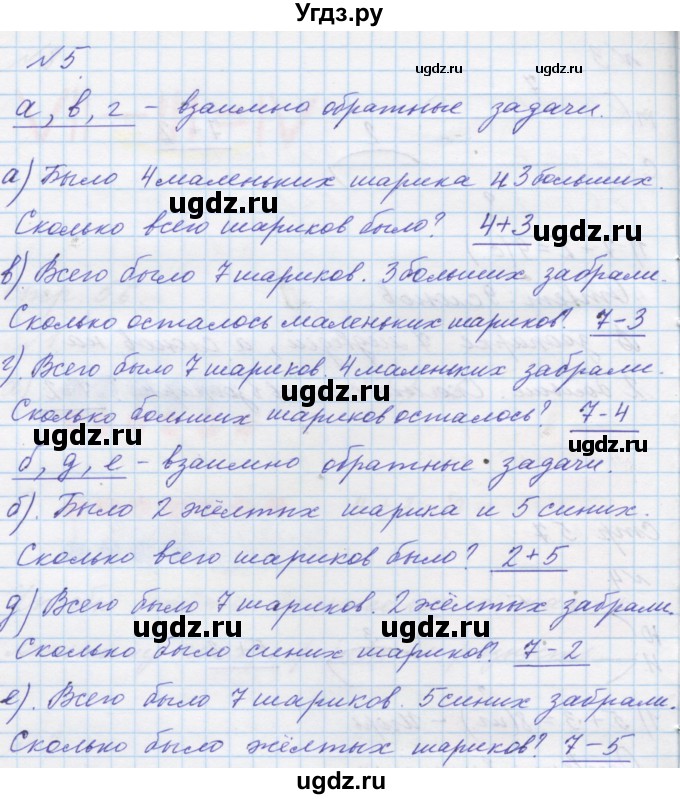 Угдз.ру
№5.
а, в, г - взаимно обратные задачи.
а) Было 4 маленьких шарика и 3 больших.
Сколько всего шариков было? 4+3
в). Всего было 7 шариков. 3 больших забрали.
Сколько осталось маленьких шариков? 7-3
г). Всего было 7 шариков. 4 маленьких забрали.
Сколько больших шариков осталось? 7-4
б, д, е - взаимно обратные задачи.
б). Было 2 жёлтых шарика и 5 синих.
Сколько всего шариков было? 2+5
д) Всего было 7 шариков. 2 жёлтых забрали.
Сколько было синих шариков? 7-2
е). Всего было 7 шариков. 5 синих забрали.
Сколько было жёлтых шариков? 7-5
ugdz.ru
ugdz.ru
ugdz.ru
ugdz.ru
ugdz.ru
ugdz.ru
ugdz.ru
ugdz.ru
ugdz.ru
ugdz.ru
ugdz.ru
ugdz.ru
ugdz.ru
ugdz.ru